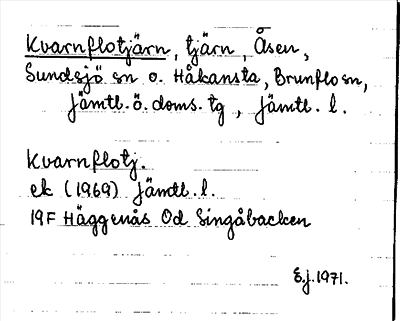 Kvarnflotjärn, tjärn, Åsen,
Sundsjö sn o. Håkansta, Brunflo sn,
Jämtl. ö. doms. tg, Jämtl. l.
Kvarnflotj.
ek (1969) Jämtl. l.
19F Häggenås Od Singåbacken
E.j. 1971.